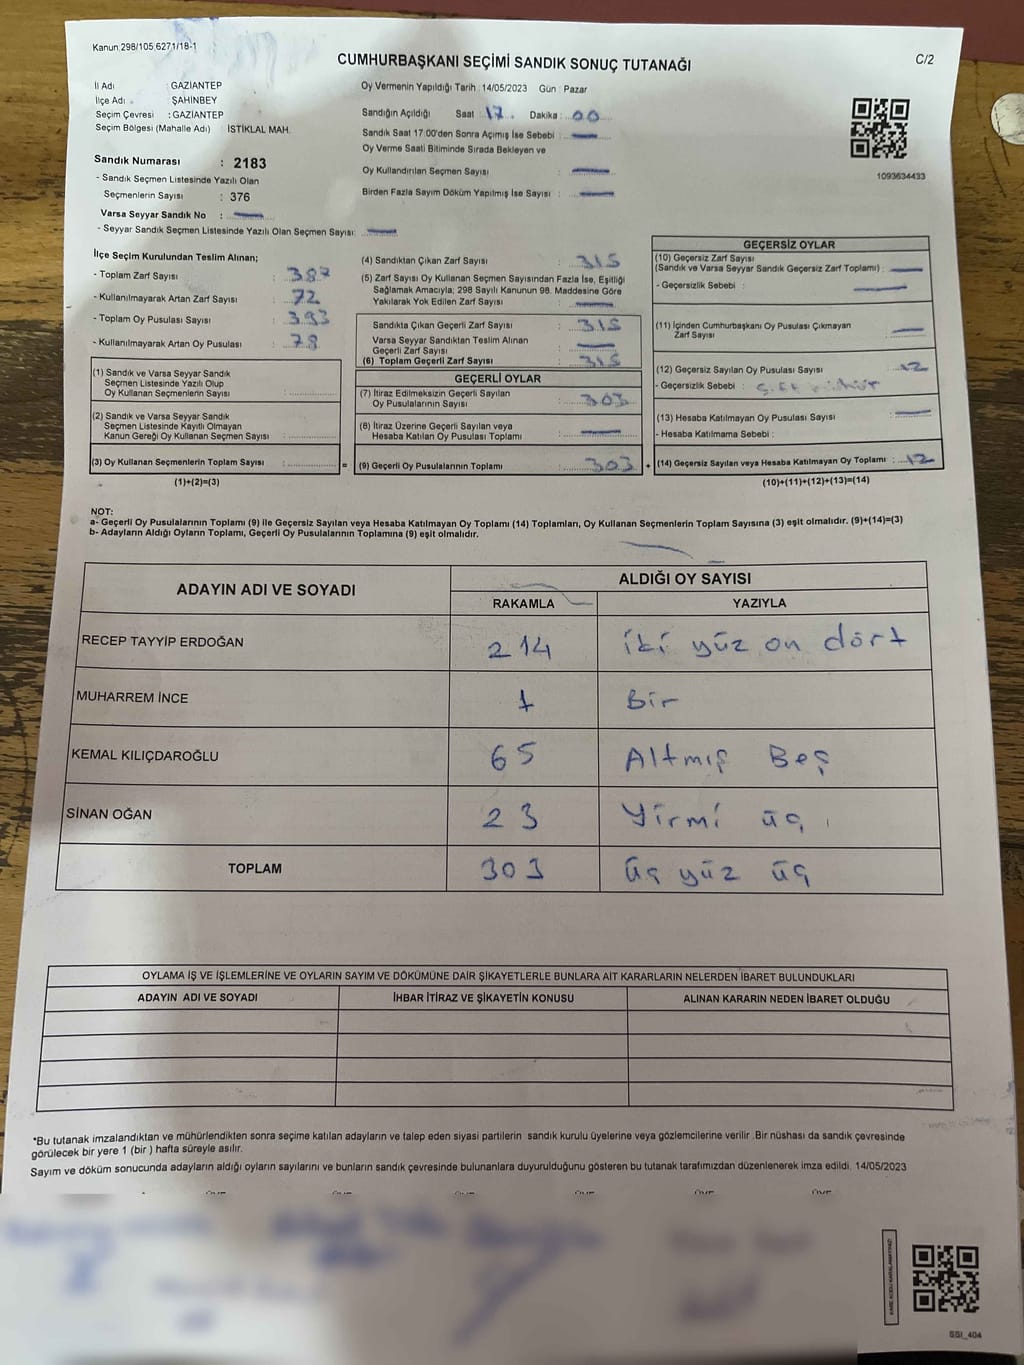 Kanun,298/105,6271/18-1
C/2
CUMHURBAŞKANI SEÇİMİ SANDIK SONUÇ TUTANAĞI
İl Adı : GAZİANTEP
İlçe Adı : ŞAHİNBEY
Seçim Çevresi : GAZİANTEP
Seçim Bölgesi (Mahalle Adı) İSTİKLAL MAH.
Sandık Numarası : 2183
- Sandık Seçmen Listesinde Yazılı Olan
Seçmenlerin Sayısı : 376
Varsa Seyyar Sandık No :
- Seyyar Sandık Seçmen Listesinde Yazılı Olan Seçmen Sayısı:
Oy Vermenin Yapıldığı Tarih : 14/05/2023 Gün : Pazar
Sandığın Açıldığı Saat : 17 Dakika : 00
Sandık Saat 17:00'den Sonra Açımış İse Sebebi :
Oy Verme Saati Bitiminde Sırada Bekleyen ve
Oy Kullandırılan Seçmen Sayısı :
Birden Fazla Sayım Döküm Yapılmış İse Sayısı :
1093634433
İlçe Seçim Kurulundan Teslim Alınan;
- Toplam Zarf Sayısı : 387
- Kullanılmayarak Artan Zarf Sayısı : 72
- Toplam Oy Pusulası Sayısı : 393
- Kullanılmayarak Artan Oy Pusulası : 78
(1) Sandık ve Varsa Seyyar Sandık
Seçmen Listesinde Yazılı Olup
Oy Kullanan Seçmenlerin Sayısı :
(2) Sandık ve Varsa Seyyar Sandık
Seçmen Listesinde Kayıtlı Olmayan
Kanun Gereği Oy Kullanan Seçmen Sayısı :
(3) Oy Kullanan Seçmenlerin Toplam Sayısı :
(1)+(2)=(3)
(4) Sandıktan Çıkan Zarf Sayısı : 315
(5) Zarf Sayısı Oy Kullanan Seçmen Sayısından Fazla İse, Eşitliği
Sağlamak Amacıyla; 298 Sayılı Kanunun 98. Maddesine Göre
Yakılarak Yok Edilen Zarf Sayısı :
Sandıkta Çıkan Geçerli Zarf Sayısı : 315
Varsa Seyyar Sandıktan Teslim Alınan
Geçerli Zarf Sayısı :
(6) Toplam Geçerli Zarf Sayısı : 315
GEÇERLİ OYLAR
(7) İtiraz Edilmeksizin Geçerli Sayılan
Oy Pusulalarının Sayısı : 303
(8) İtiraz Üzerine Geçerli Sayılan veya
Hesaba Katılan Oy Pusulası Toplamı :
= (9) Geçerli Oy Pusulalarının Toplamı : 303 +
GEÇERSİZ OYLAR
(10) Geçersiz Zarf Sayısı
(Sandık ve Varsa Seyyar Sandık Geçersiz Zarf Toplamı) :
- Geçersizlik Sebebi :
(11) İçinden Cumhurbaşkanı Oy Pusulası Çıkmayan
Zarf Sayısı :
(12) Geçersiz Sayılan Oy Pusulası Sayısı : 12
- Geçersizlik Sebebi : Çift
(13) Hesaba Katılmayan Oy Pusulası Sayısı :
- Hesaba Katılmama Sebebi :
(14) Geçersiz Sayılan veya Hesaba Katılmayan Oy Toplamı : 12
(10)+(11)+(12)+(13)=(14)
NOT:
a- Geçerli Oy Pusulalarının Toplamı (9) ile Geçersiz Sayılan veya Hesaba Katılmayan Oy Toplamı (14) Toplamları, Oy Kullanan Seçmenlerin Toplam Sayısına (3) eşit olmalıdır. (9)+(14)=(3)
b- Adayların Aldığı Oyların Toplamı, Geçerli Oy Pusulalarının Toplamına (9) eşit olmalıdır.
ADAYIN ADI VE SOYADI ALDIĞI OY SAYISI
RAKAMLA YAZIYLA
RECEP TAYYİP ERDOĞAN 214 iki yüz on dört
MUHARREM İNCE 1 Bir
KEMAL KILIÇDAROĞLU 65 Altmış Beş
SİNAN OĞAN 23 Yirmi üç
TOPLAM 303 üç yüz üç
OYLAMA İŞ VE İŞLEMLERİNE VE OYLARIN SAYIM VE DÖKÜMÜNE DAİR ŞİKAYETLERLE BUNLARA AİT KARARLARIN NELERDEN İBARET BULUNDUKLARI
ADAYIN ADI VE SOYADI İHBAR İTİRAZ VE ŞİKAYETİN KONUSU ALINAN KARARIN NEDEN İBARET OLDUĞU
*Bu tutanak imzalandıktan ve mühürlendikten sonra seçime katılan adayların ve talep eden siyasi partilerin sandık kurulu üyelerine veya gözlemcilerine verilir .Bir nüshası da sandık çevresinde
görülecek bir yere 1 (bir ) hafta süreyle asılır.
Sayım ve döküm sonucunda adayların aldığı oyların sayılarını ve bunların sandık çevresinde bulunanlara duyurulduğunu gösteren bu tutanak tarafımızdan düzenlenerek imza edildi. 14/05/2023
SGI_404